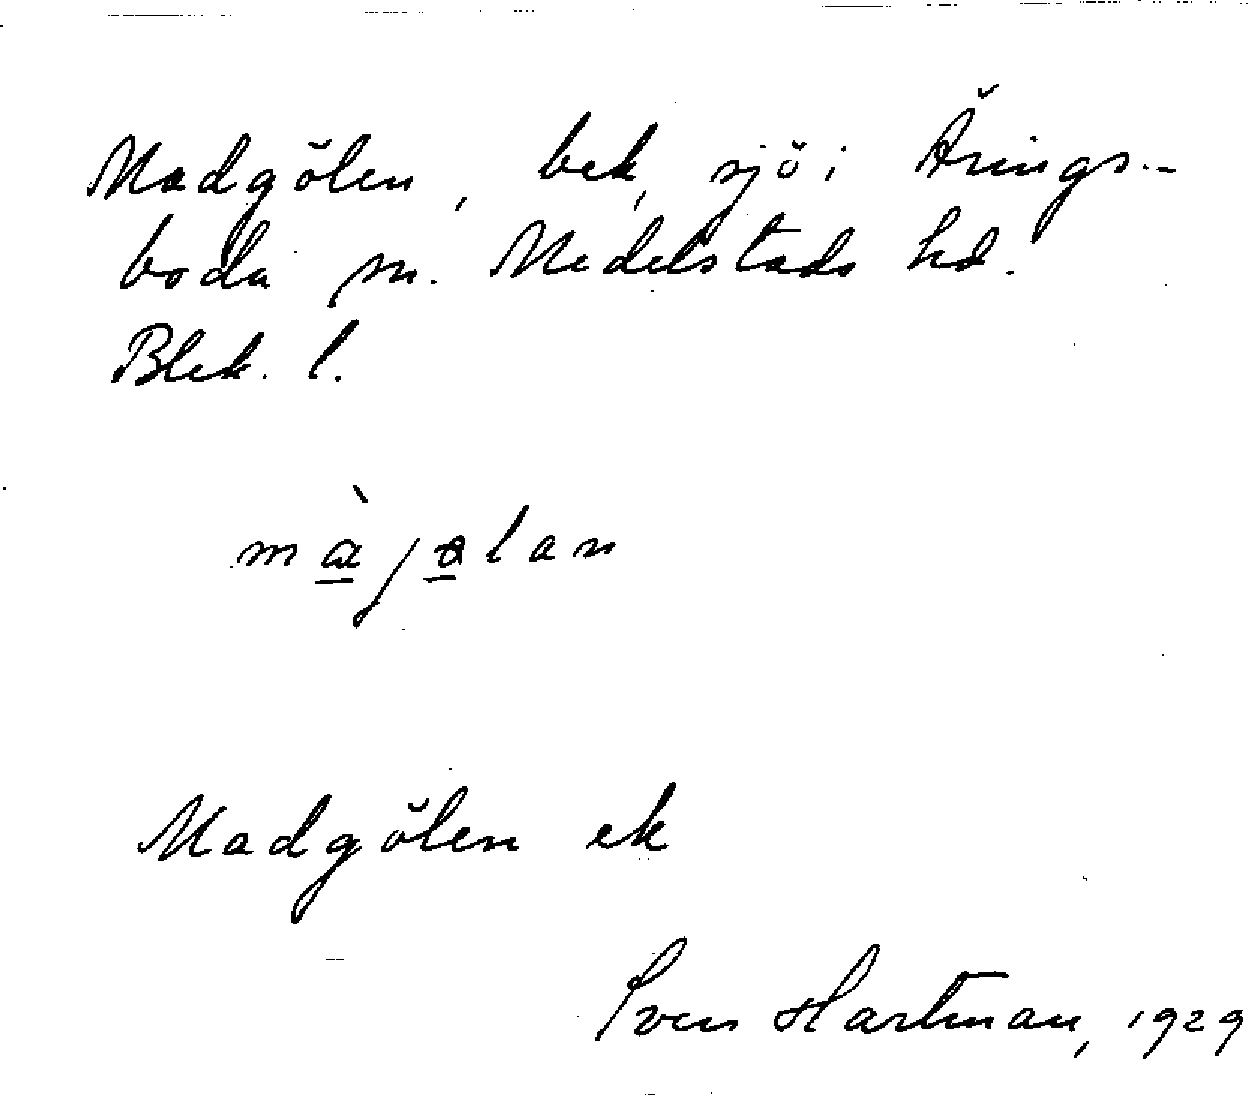 Madgölen, bek, sjö i Årings-
boda sn. Medelstads hd.
Blek. l.
Madgölen ek
Sven Hartman, 1929